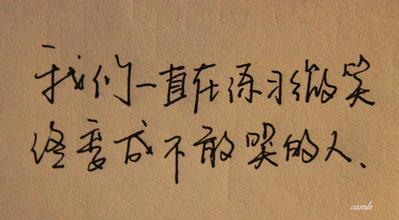 我们一直在练习微笑
终变成不敢哭的人、
camle